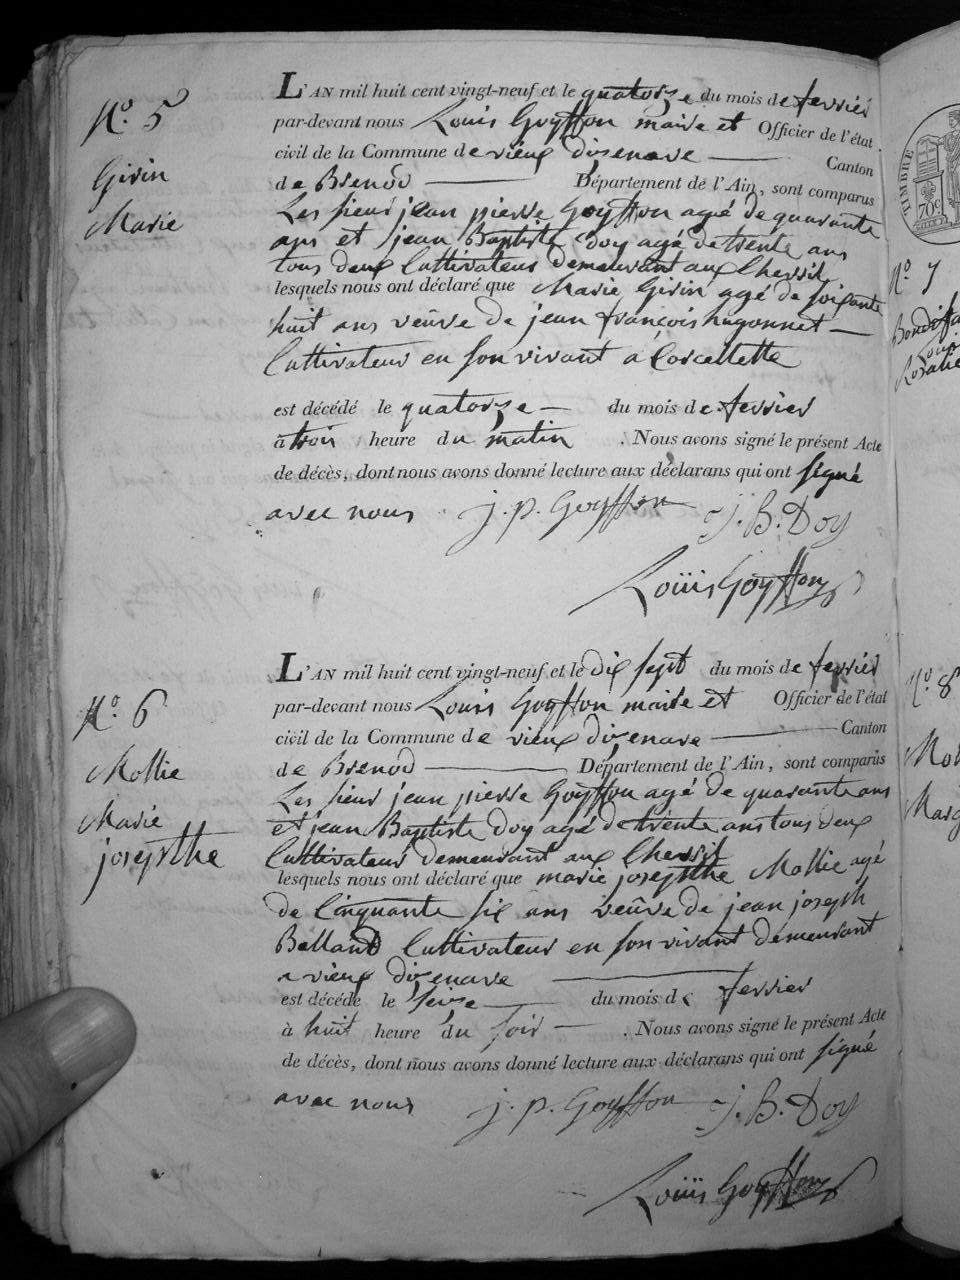 N.o 5
Girin
Marie
L'AN mil huit cent vingt-neuf et le quatorze du mois de fevrier
par-devant nous Louis Goyffon maire et Officier de l'état
civil de la Commune de vieux disenave Canton
de Brenod Département de l'Ain, sont comparus
Les sieur jean pierre Goyffon agé de quarante
ans et jean Baptiste doy agé de trente ans
tous deux Cultivateur demeurant aux
lesquels nous ont déclaré que Marie Girin agé de soixante
huit ans veûve de jean françois hugonnet
Cultivateur en son vivant a Corcellette
est décédé le quatorze du mois de fevrier
à troi heure du matin . Nous avons signé le présent Acte
de décès, dont nous avons donné lecture aux déclarans qui ont signé
avec nous j. p. Goyffon J. B. Doy
Loüis Goyffon
N.o 6
Mollie
Marie
josephthe
L'AN mil huit cent vingt-neuf et le dix sept du mois de fevrier
par-devant nous Louis Goyffon maire et Officier de l'état
civil de la Commune de vieux disenave Canton
de Brenod Département de l'Ain, sont comparus
Les sieur jean pierre Goyffon agé de quarante ans
et jean Baptiste doy agé de trente ans tous deux
Cultivateur demeurant aux
lesquels nous ont déclaré que marie josephthe Mollie agé
de Cinquante six ans veûve de jean joseph
Balland Cultivateur en son vivant demeurant
a vieux disenave
est décédé le seize du mois de fevrier
à huit heure du soir . Nous avons signé le présent Acte
de décès, dont nous avons donné lecture aux déclarans qui ont signé
avec nous j. p. Goyffon J. B. Doy
Loüis Goyffon
TIMBRE
70c
N.o 7
N.o 8